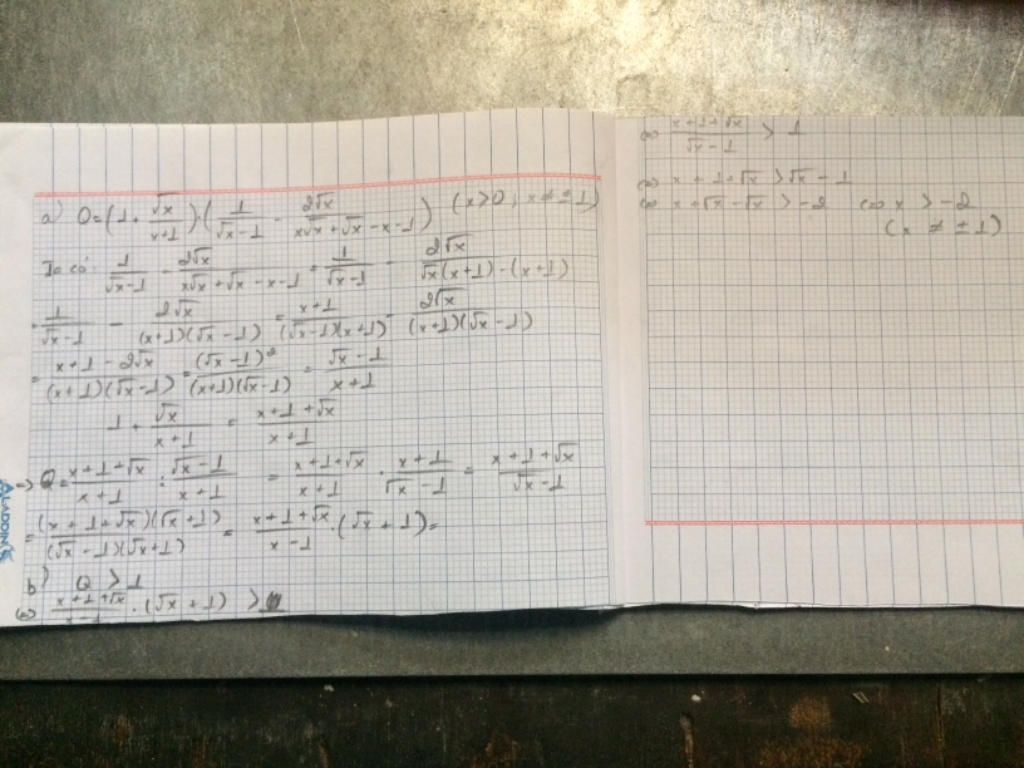 a) Q = (1 + √x/(x+1)) : (1/(√x-1) - 2√x/(x√x+√x-x-1)) (x>0; x≠±1)
Ta có: 1/(√x-1) - 2√x/(x√x+√x-x-1) = 1/(√x-1) - 2√x/(√x(x+1)-(x+1))
= 1/(√x-1) - 2√x/((x+1)(√x-1)) = (x+1)/((√x-1)(x+1)) - 2√x/((x+1)(√x-1))
= (x+1-2√x)/((x+1)(√x-1)) = (√x-1)²/((x+1)(√x-1)) = (√x-1)/(x+1)
1 + √x/(x+1) = (x+1+√x)/(x+1)
=> Q = (x+1+√x)/(x+1) : (√x-1)/(x+1) = (x+1+√x)/(x+1) · (x+1)/(√x-1) = (x+1+√x)/(√x-1)
= ((x+1+√x)(√x+1))/((√x-1)(√x+1)) = (x+1+√x)/(x-1) · (√x+1) =
b) Q > 1
<=> (x+1+√x)/(x-1) · (√x+1) >
ALADDIN
<=> (x+1+√x)/(√x-1) > 1
<=> x+1+√x > √x-1
<=> x+√x-√x > -2 <=> x > -2
(x ≠ ±1)